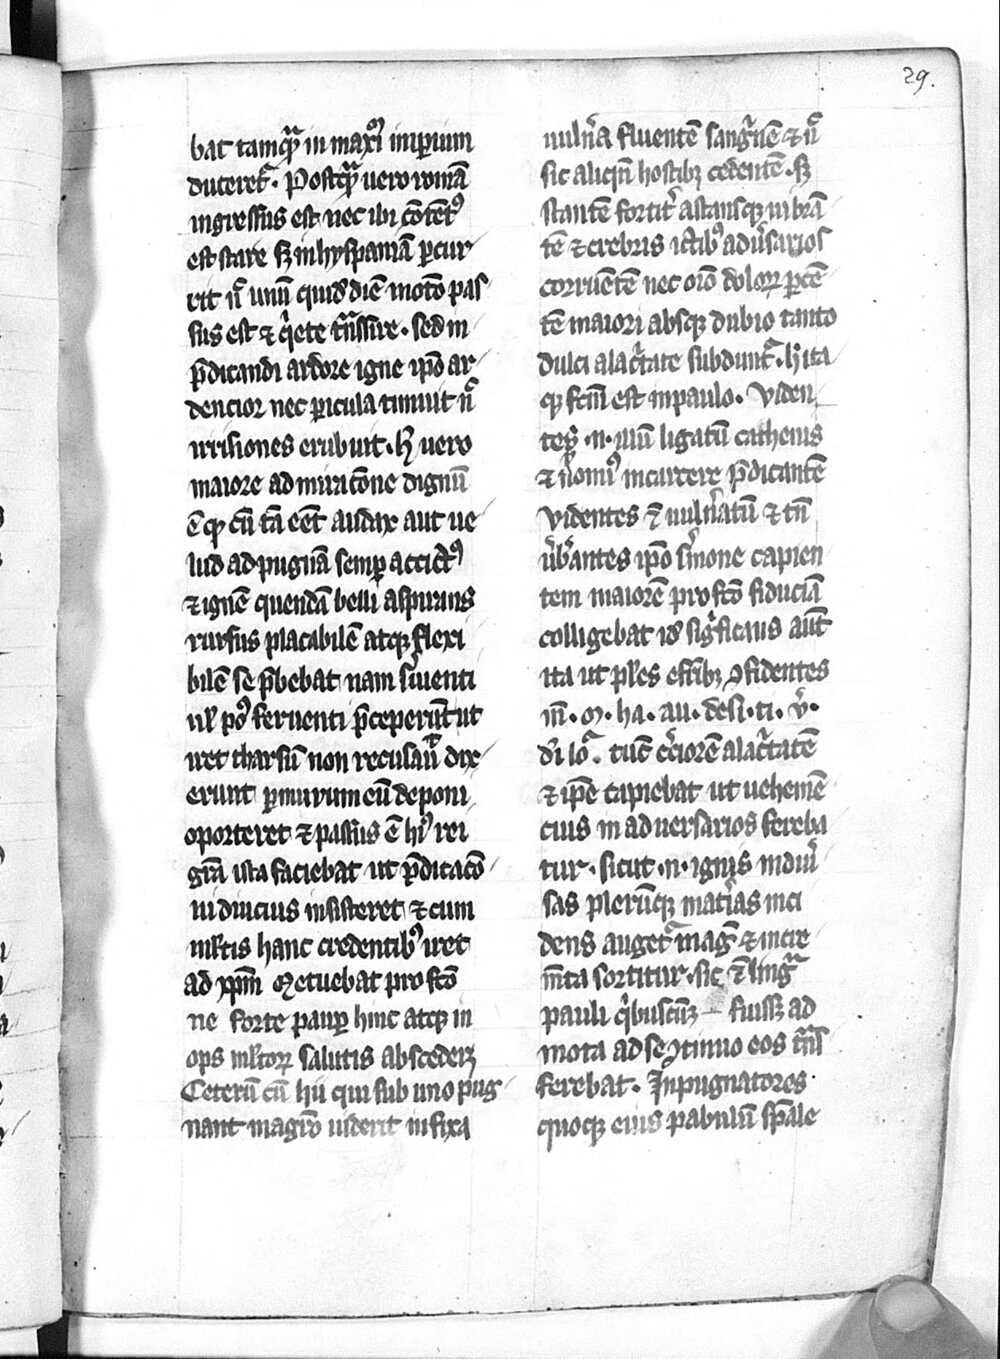 29.
bat tamqᷓ in maxiꝰ imperium
duceretᷓ. Postqᷓ uero romā
ingressus est nec ibi ꝯtētꝰ
est stare sꝫ in hyspaniā ꝑcur
rit nᷓ unū quidē diē moto pas
sus est ⁊ qͥete tᷓnssire. sed in
p̄dicandi ardore igne ipō ar
dencior nec ꝑicula timuit nᷓ
irrisiones erubuit. h̄ uero
maiore admiracōne dignū
ē qꝫ cū tā eēt audax aut ue
lud ad pugnā semꝑ accictꝰ
⁊ ignē quendā belli aspirans
rursus placabilē atqꝫ flexi
bilē se p̄bebat nam siuenti
ul̄ poꝰ feruenti p̄ceperūt ut
iret tharsū non recusauᷓ dix
erunt ꝑ murum eū deponi
oporteret ⁊ passus ē hiꝰ rei
grā ista faciebat ut p̄dicacō
ni diucius insisteret ⁊ cum
ml̄tis hanc credentibꝰ iret
ad xp̄m Metuebat pro fcō
ne forte pauꝑ hinc atqꝫ in
ops ml̄toꝝ salutis abscederꝫ
Ceterū cū hii qui sub uno pug
nant magrō uiderit infixa
uulnᷓa fluentē sangᷓnē ⁊ nᷓ
sic aliqm̄ hostibꝫ cedentē. sꝫ
stantē fortitᷓ astansqꝫ uibrā
tē ⁊ crebris ictibꝰ adūsarios
corruentē nec oīo doloꝝ ꝑcē
tē maiori absqꝫ dubio tanto
dulci alacᷓtate subduntᷓ. h̄ ita
qꝫ fcm̄ est in paulo. Viden
tes .n. illū ligatū cathenis
⁊ nᷓomiꝰ in carcere p̄dicantē
videntes ⁊ uulnᷓatū ⁊ tn̄
ūbᷓantes ipō sᷓmone capien
tem maiorē pro fcō fiduciā
colligebat id̄ sigᷓficans aūt
ita ut pl̄es efr̄ibꝫ ꝯfidentes
in̄. m. ha. au. desi. ti. v̄.
dī loᷓ. tūc cᷓciorē alacᷓtatē
⁊ ip̄e capiebat ut uehemē
cius in aduersarios fereba
tur. sicut .n. ignis in diuᷓ
sas plerūqꝫ matᷓias inci
dens augetᷓ magᷓ ⁊ incre
m̄ta sortitur. sic ⁊ lingᷓ
pauli qͥbuscūꝫ fuissꝫ ad
mota ad se ꝯtinuo eos tᷓns
ferebat. Inpugnatores
quoqꝫ eius pabulū sp̄ale